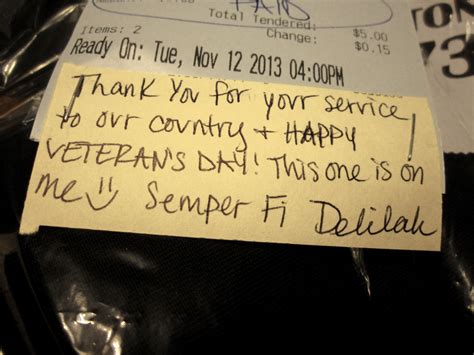 PAID
Total Tendered: $5.00
Items: 2 Change: $0.15
Ready On: Tue, Nov 12 2013 04:00PM
Thank You for your service
to our country + HAPPY
VETERAN'S DAY! This one is on
me Semper Fi Delilah
73